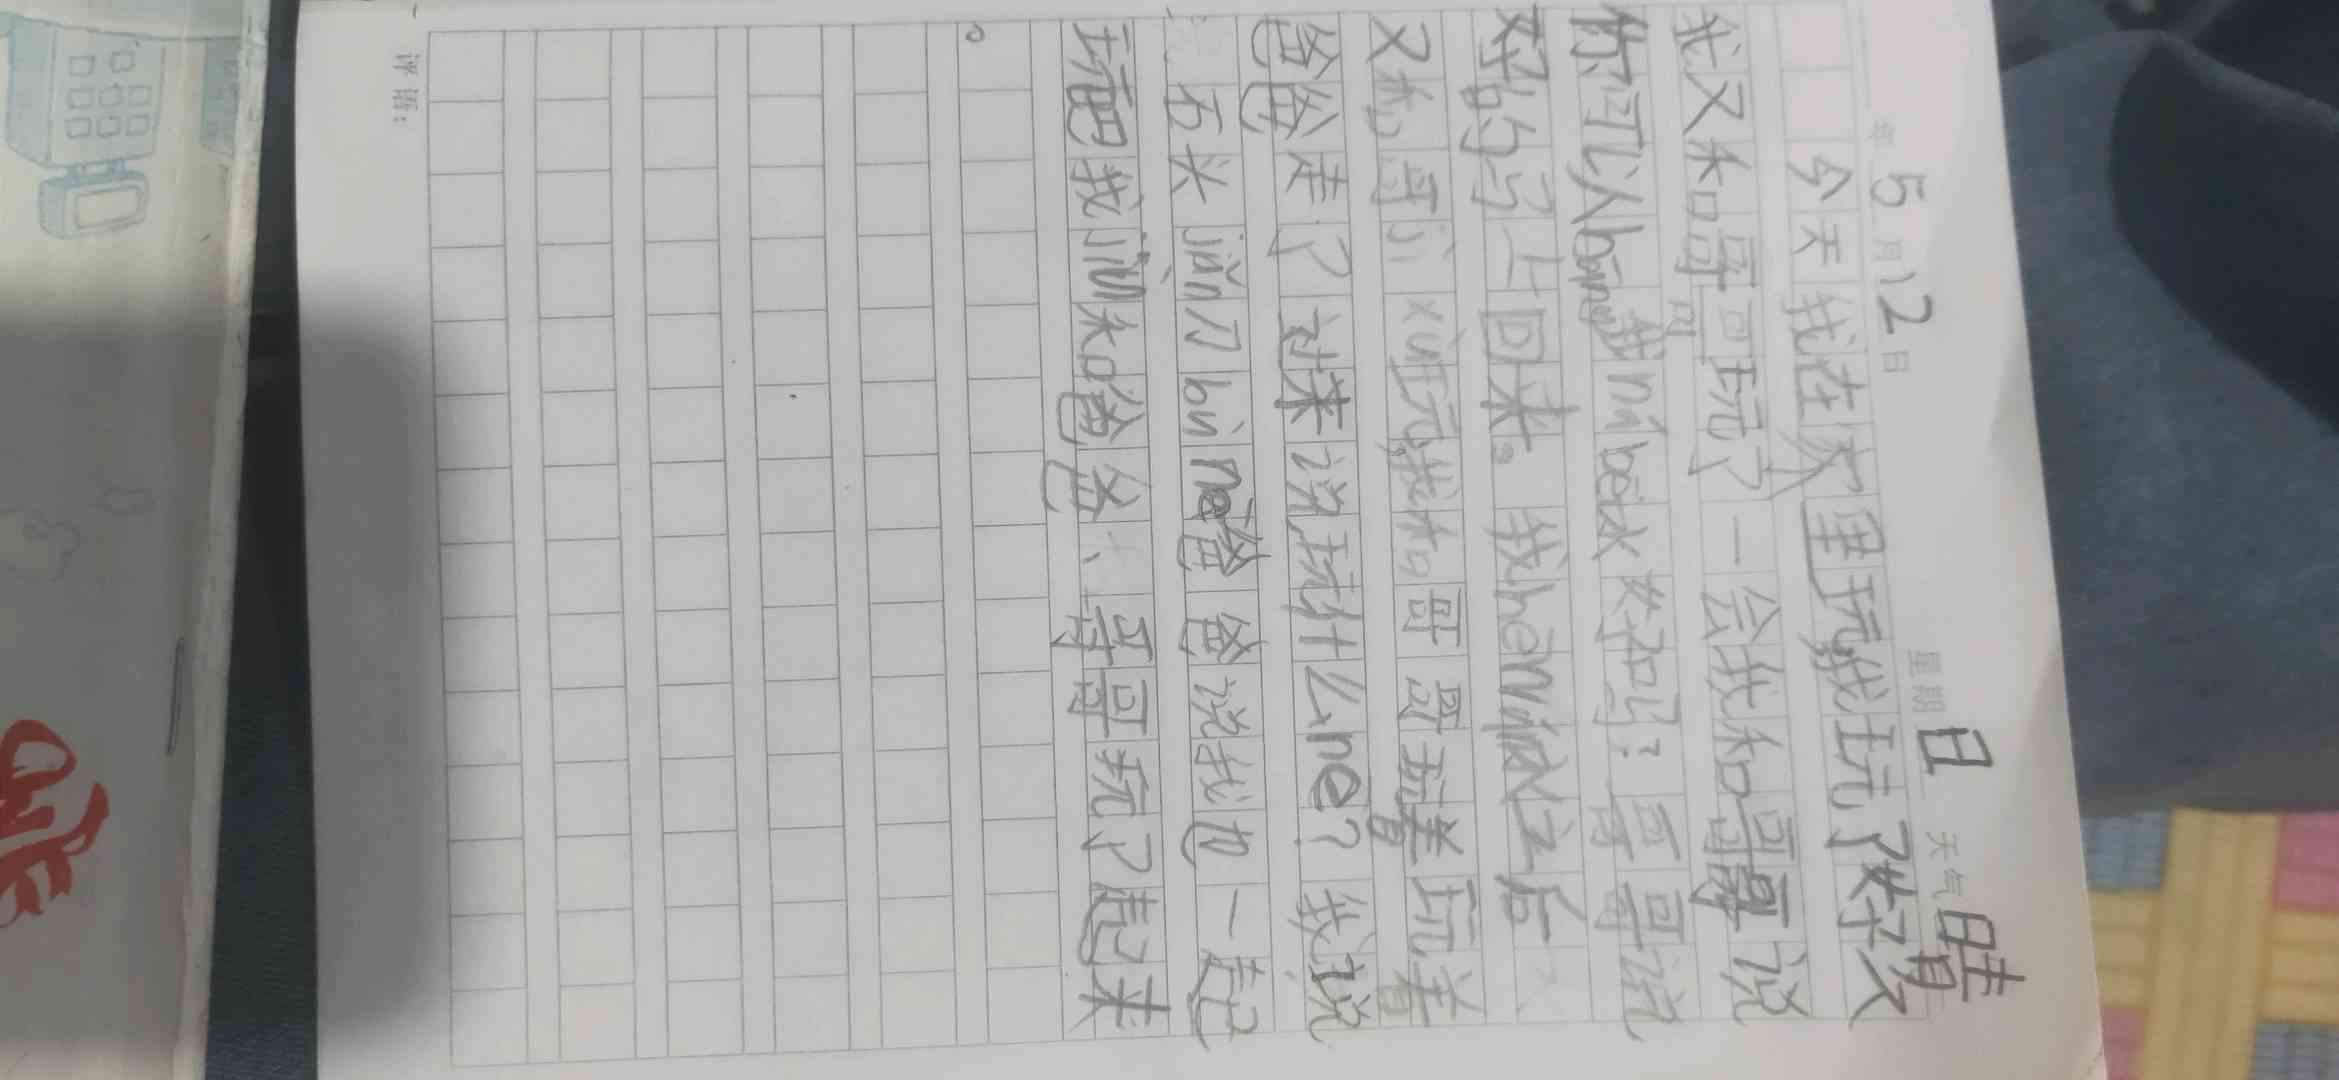 年5月12日 星期日 天气晴
今天我在家里玩我玩了好久
我又和哥哥玩了一会我和哥哥说
你可以bāng我ná bēi水好吗?哥哥说
好的马上回来。我hē完水之后
又和哥哥jì xù玩我和哥哥玩着玩着
爸爸走了过来说玩什么ne?我说
石头jiǎn刀bù ne爸爸说我也一起
玩吧我jiù和爸爸、哥哥玩了起来
。
评语: